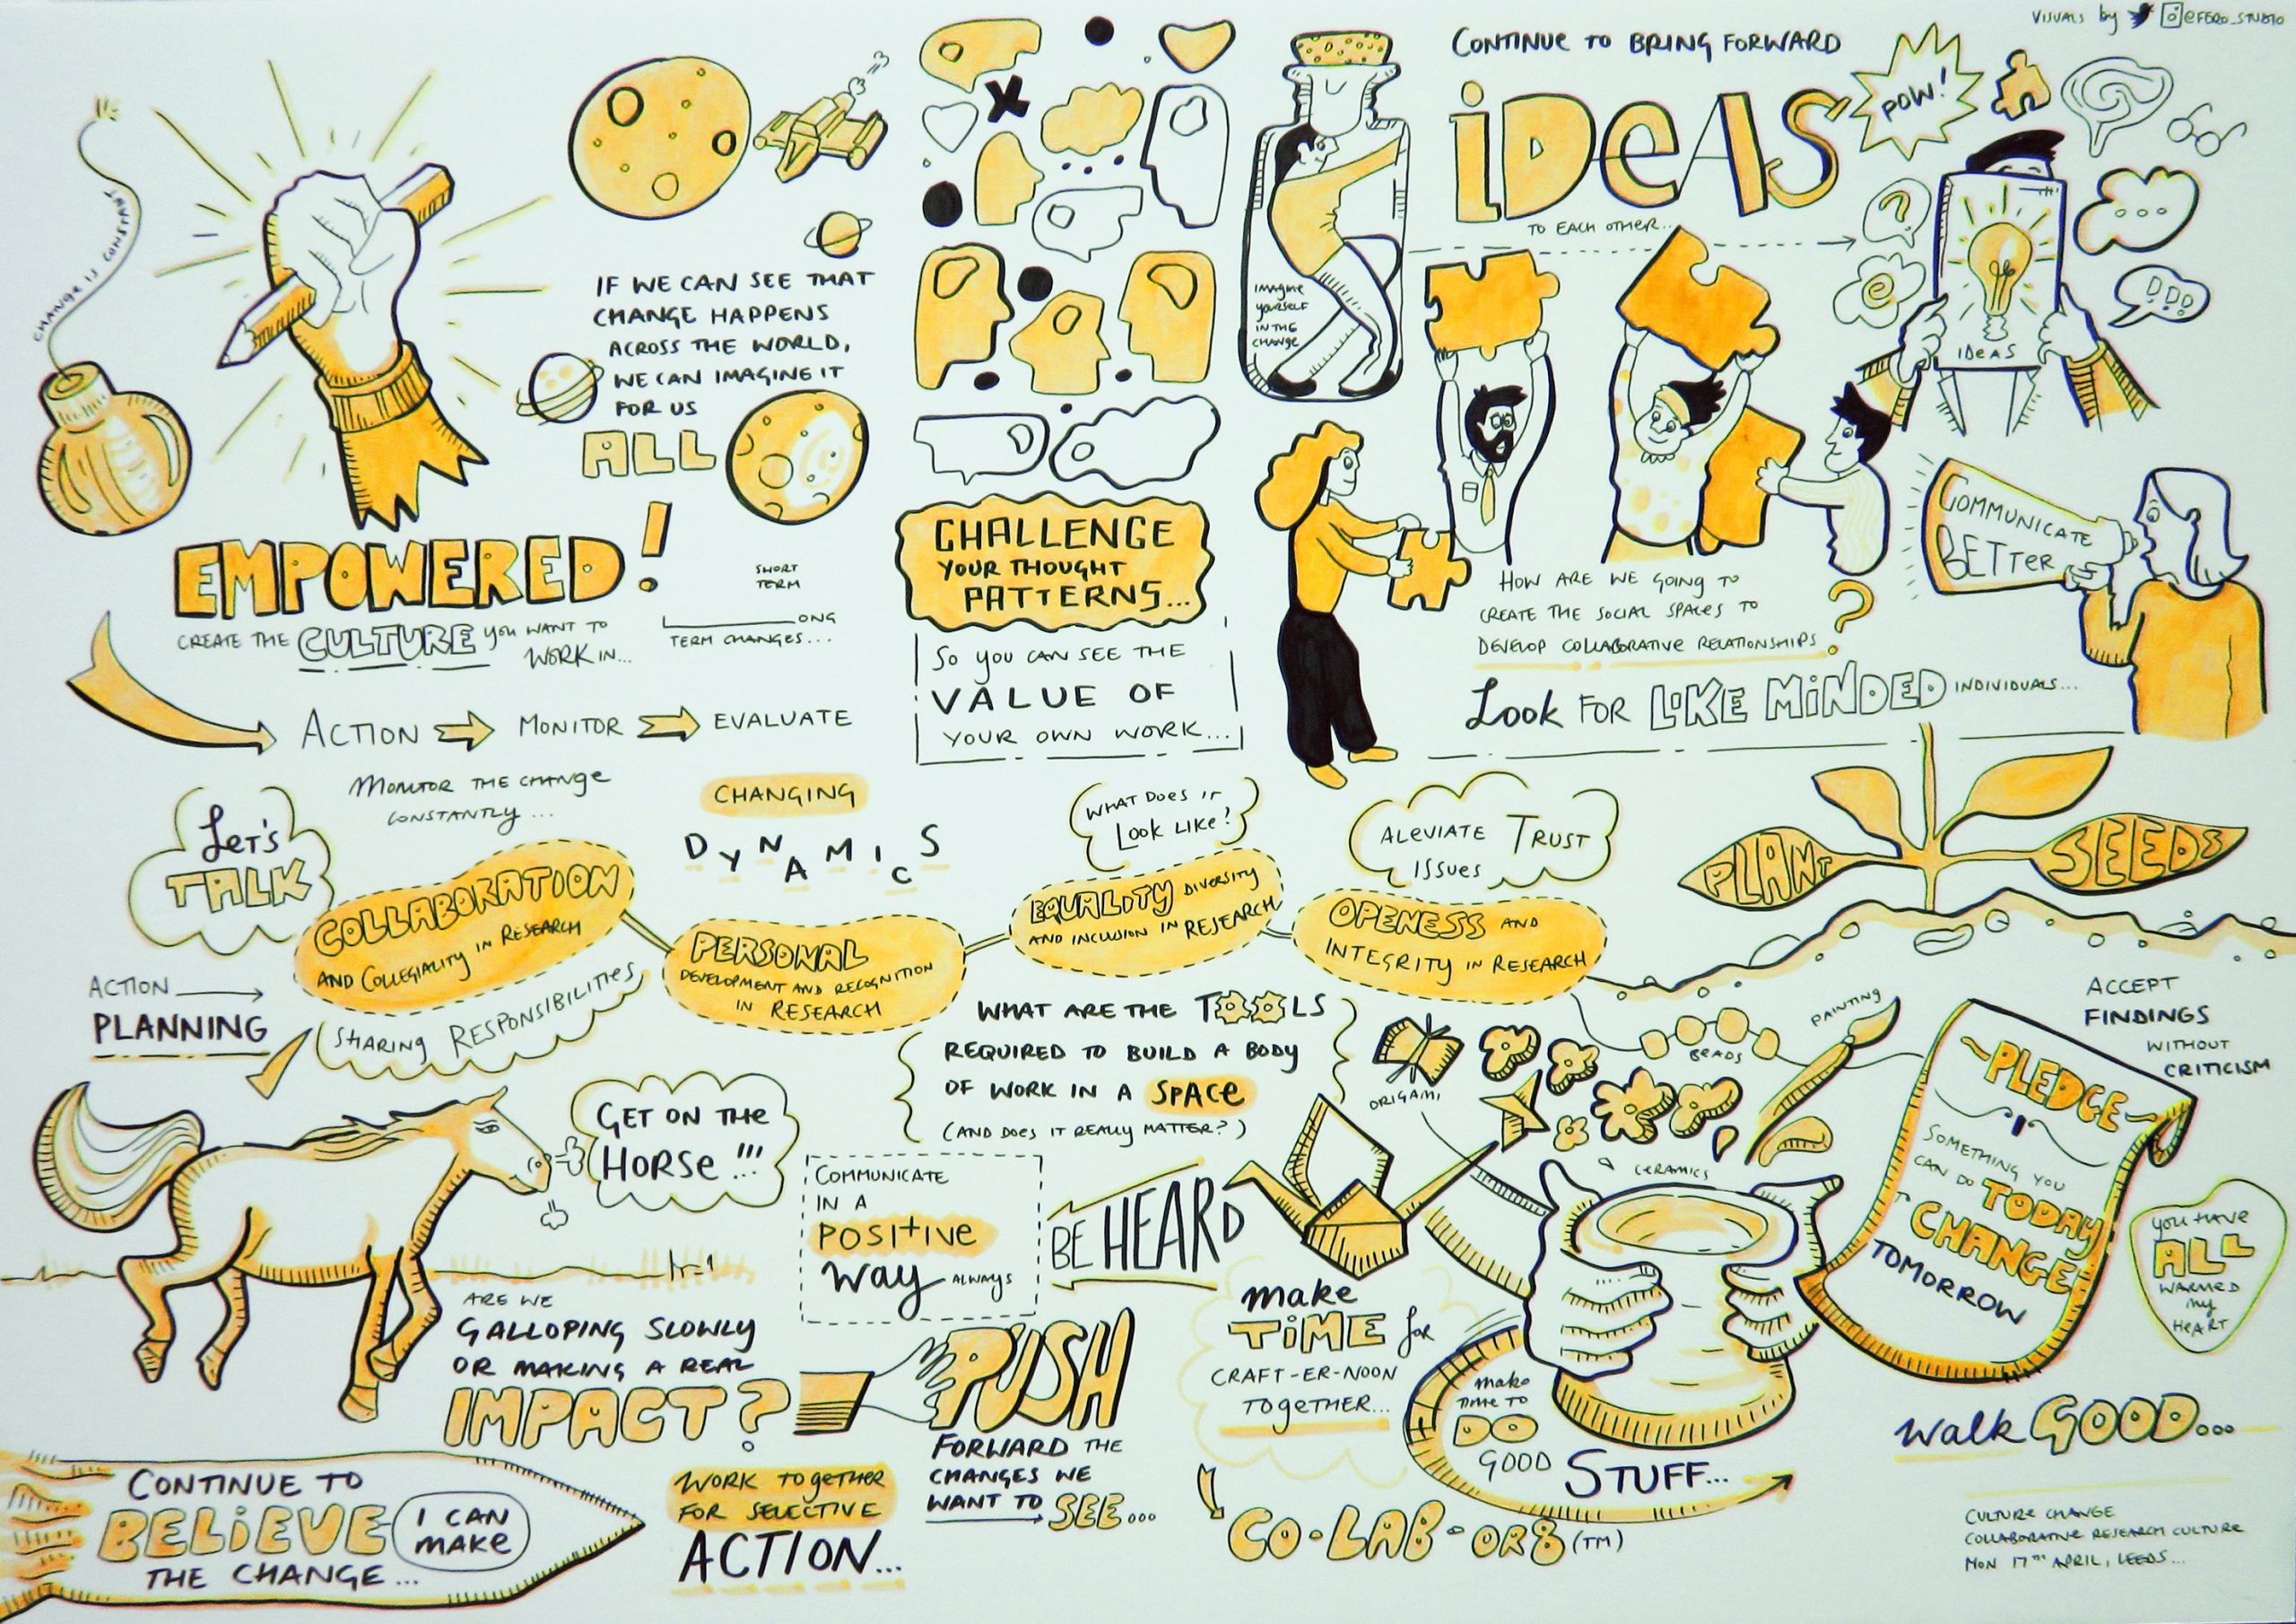 VISUALS by @FERO_STUDIO
CHANGE IS CONSTANT
IF WE CAN SEE THAT
CHANGE HAPPENS
ACROSS THE WORLD,
WE CAN IMAGINE IT
FOR US
ALL
EMPOWERED!
CREATE THE CULTURE YOU WANT TO
WORK IN...
SHORT
TERM
LONG
TERM CHANGES...
ACTION MONITOR EVALUATE
MONITOR THE CHANGE
CONSTANTLY...
CHALLENGE
YOUR THOUGHT
PATTERNS...
SO YOU CAN SEE THE
VALUE OF
YOUR OWN WORK...
IMAGINE
YOURSELF
IN THE
CHANGE
CONTINUE TO BRING FORWARD
IDEAS
TO EACH OTHER...
POW!
?
e
...
!!!
IDEAS
HOW ARE WE GOING TO
CREATE THE SOCIAL SPACES TO
DEVELOP COLLABORATIVE RELATIONSHIPS?
COMMUNICATE
BETTER
LOOK FOR LIKE MINDED INDIVIDUALS...
LET'S
TALK
COLLABORATION
AND COLLEGIALITY IN RESEARCH
SHARING RESPONSIBILITIES
CHANGING
DYNAMICS
PERSONAL
DEVELOPMENT AND RECOGNITION
IN RESEARCH
WHAT DOES IT
LOOK LIKE?
EQUALITY DIVERSITY
AND INCLUSION IN RESEARCH
ALEVIATE TRUST
ISSUES
OPENESS AND
INTEGRITY IN RESEARCH
PLANT SEEDS
ACTION
PLANNING
GET ON THE
HORSE!!!
ARE WE
GALLOPING SLOWLY
OR MAKING A REAL
IMPACT?
WHAT ARE THE TOOLS
REQUIRED TO BUILD A BODY
OF WORK IN A SPACE
(AND DOES IT REALLY MATTER?)
COMMUNICATE
IN A
POSITIVE
WAY ALWAYS
BE HEARD
ORIGAMI
BEADS
PAINTING
CERAMICS
PLEDGE
SOMETHING YOU
CAN DO TODAY
TO CHANGE
TOMORROW
ACCEPT
FINDINGS
WITHOUT
CRITICISM
YOU HAVE
ALL
WARMED
MY
HEART
MAKE
TIME FOR
CRAFT-ER-NOON
TOGETHER...
MAKE
TIME TO
DO
GOOD STUFF...
CO-LAB-OR8 (TM)
PUSH
FORWARD THE
CHANGES WE
WANT TO SEE...
WORK TOGETHER
FOR SELECTIVE
ACTION...
CONTINUE TO
BELIEVE I CAN
MAKE
THE CHANGE...
WALK GOOD...
CULTURE CHANGE
COLLABORATIVE RESEARCH CULTURE
MON 17TH APRIL, LEEDS...